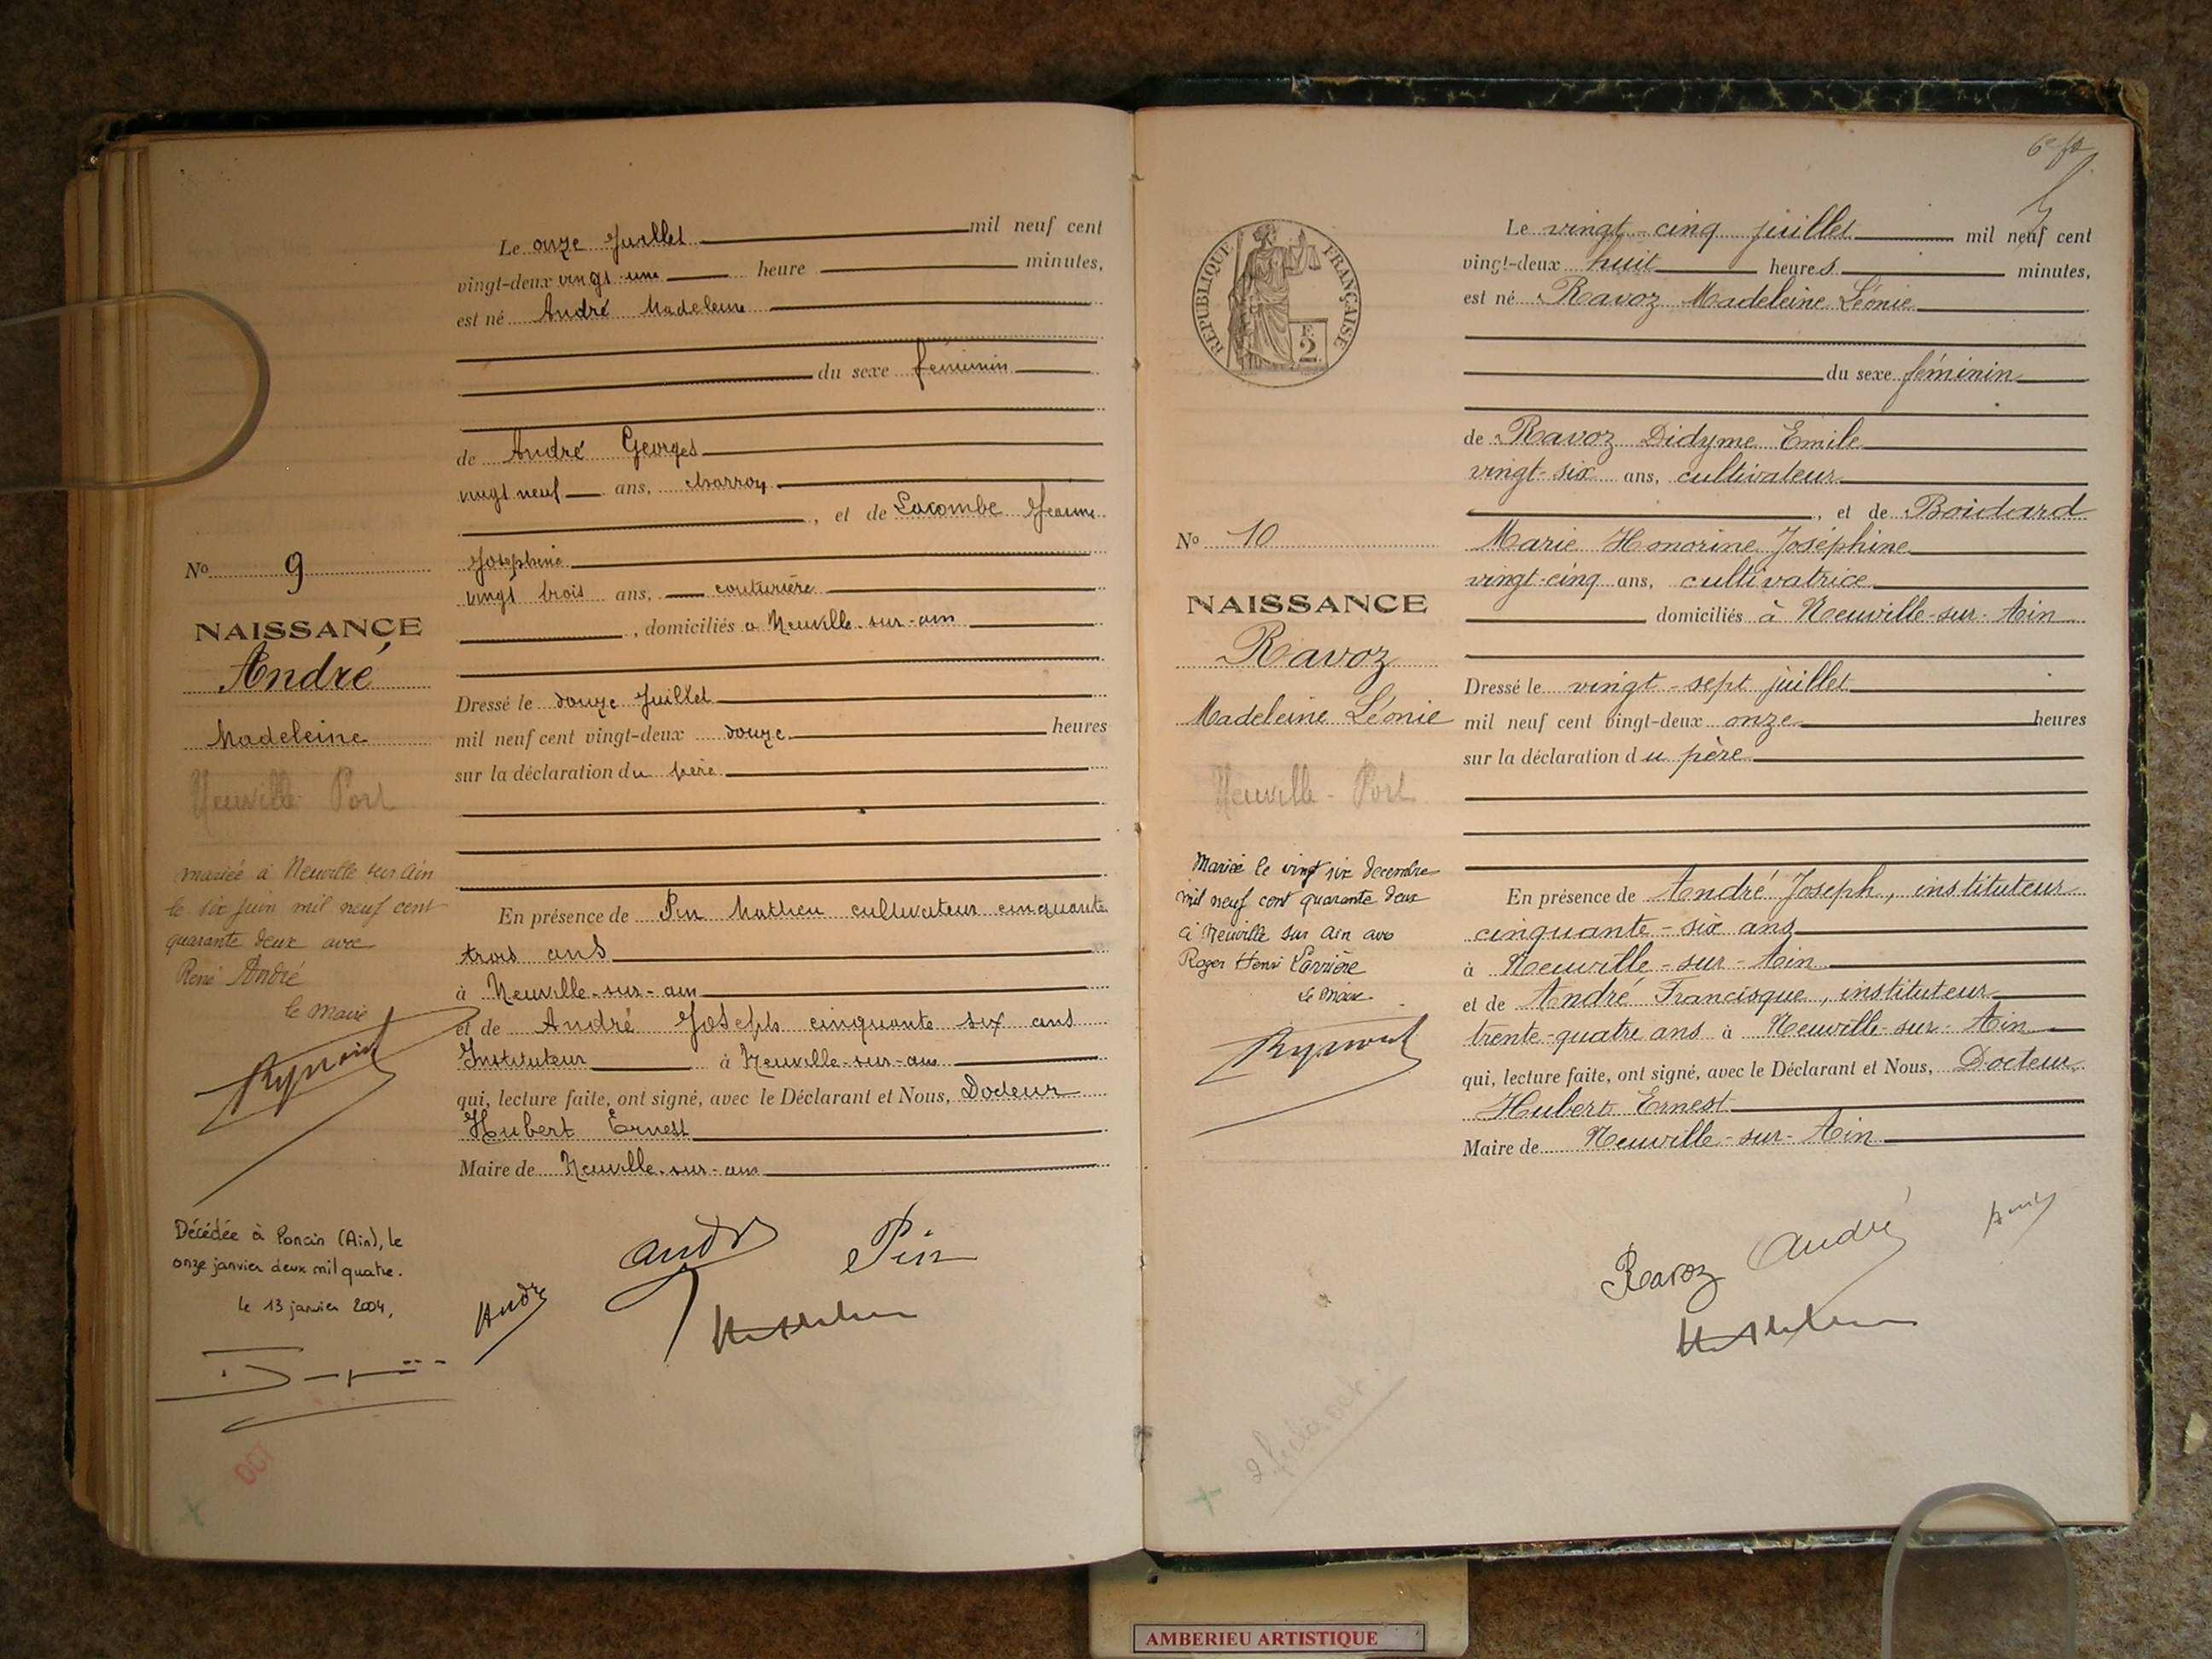 Le onze Juillet mil neuf cent
vingt-deux vingt-une heure minutes,
est né André Madeleine
du sexe féminin
de André Georges
vingt neuf ans, charron
, et de Lacombe Jeanne
Josephine
vingt trois ans, couturière
, domiciliés à Neuville-sur-ain
Dressé le douze Juillet
mil neuf cent vingt-deux douze heures
sur la déclaration du père
En présence de Pin Mathieu cultivateur cinquante
trois ans
à Neuville-sur-ain
et de André Joseph cinquante six ans
Instituteur à Neuville-sur-ain
qui, lecture faite, ont signé, avec le Déclarant et Nous, Docteur
Hubert Ernest
Maire de Neuville-sur-ain
No 9
NAISSANCE
André
Madeleine
Neuville Port
mariée à Neuville sur Ain
le six juin mil neuf cent
quarante deux avec
René André
le Maire
Décédée à Poncin (Ain), le
onze janvier deux mil quatre.
le 13 janvier 2004,
André
Pin
André
REPUBLIQUE FRANÇAISE
F.
2
Le vingt-cinq juillet mil neuf cent
vingt-deux huit heures minutes,
est né Ravoz Madeleine Léonie
du sexe féminin
de Ravoz Didyme Emile
vingt-six ans, cultivateur
, et de Boidard
Marie Honorine Joséphine
vingt-cinq ans, cultivatrice
domiciliés à Neuville-sur-Ain
Dressé le vingt-sept juillet
mil neuf cent vingt-deux onze heures
sur la déclaration du père
En présence de André Joseph, instituteur
cinquante-six ans
à Neuville-sur-Ain
et de André Francisque, instituteur
trente-quatre ans à Neuville-sur-Ain
qui, lecture faite, ont signé, avec le Déclarant et Nous, Docteur
Hubert Ernest
Maire de Neuville-sur-Ain
No 10
NAISSANCE
Ravoz
Madeleine Léonie
Neuville-Port
Mariée le vingt six decembre
mil neuf cent quarante deux
à Neuville sur Ain avec
Roger Henri Carrière
Le Maire
Ravoz
André
AMBERIEU ARTISTIQUE